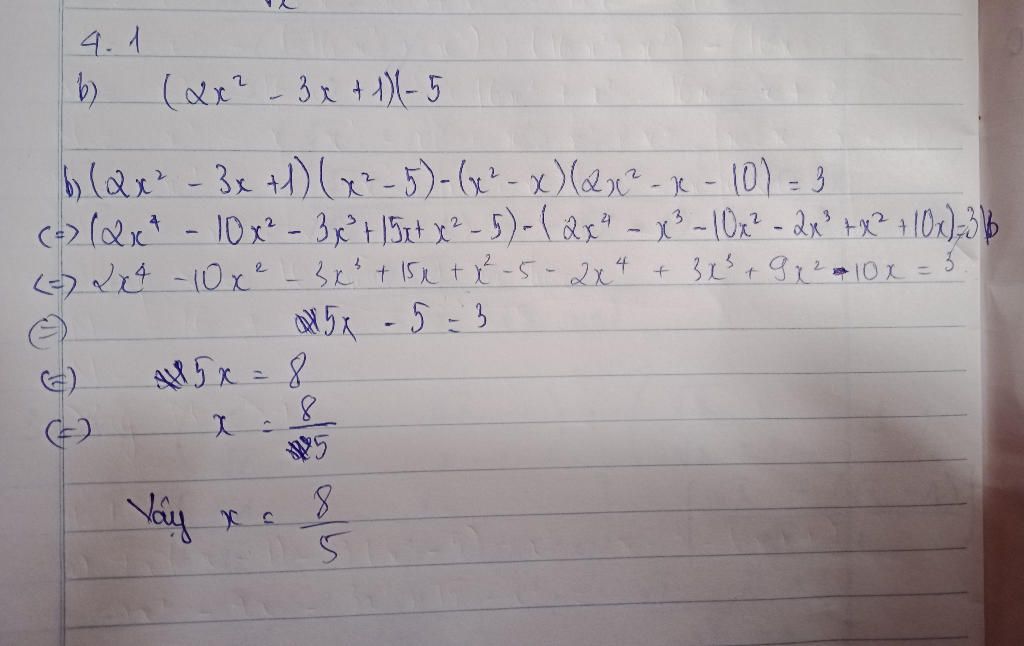 4.1
b) (2x² - 3x + 1)(-5
b) (2x² - 3x + 1)(x² - 5) - (x² - x)(2x² - x - 10) = 3
<=> (2x⁴ - 10x² - 3x³ + 15x + x² - 5) - (2x⁴ - x³ - 10x² - 2x³ + x² + 10x) = 3
<=> 2x⁴ - 10x² - 3x³ + 15x + x² - 5 - 2x⁴ + 3x³ + 9x² - 10x = 3
<=> 5x - 5 = 3
<=> 5x = 8
<=> x = 8/5
Vậy x = 8/5